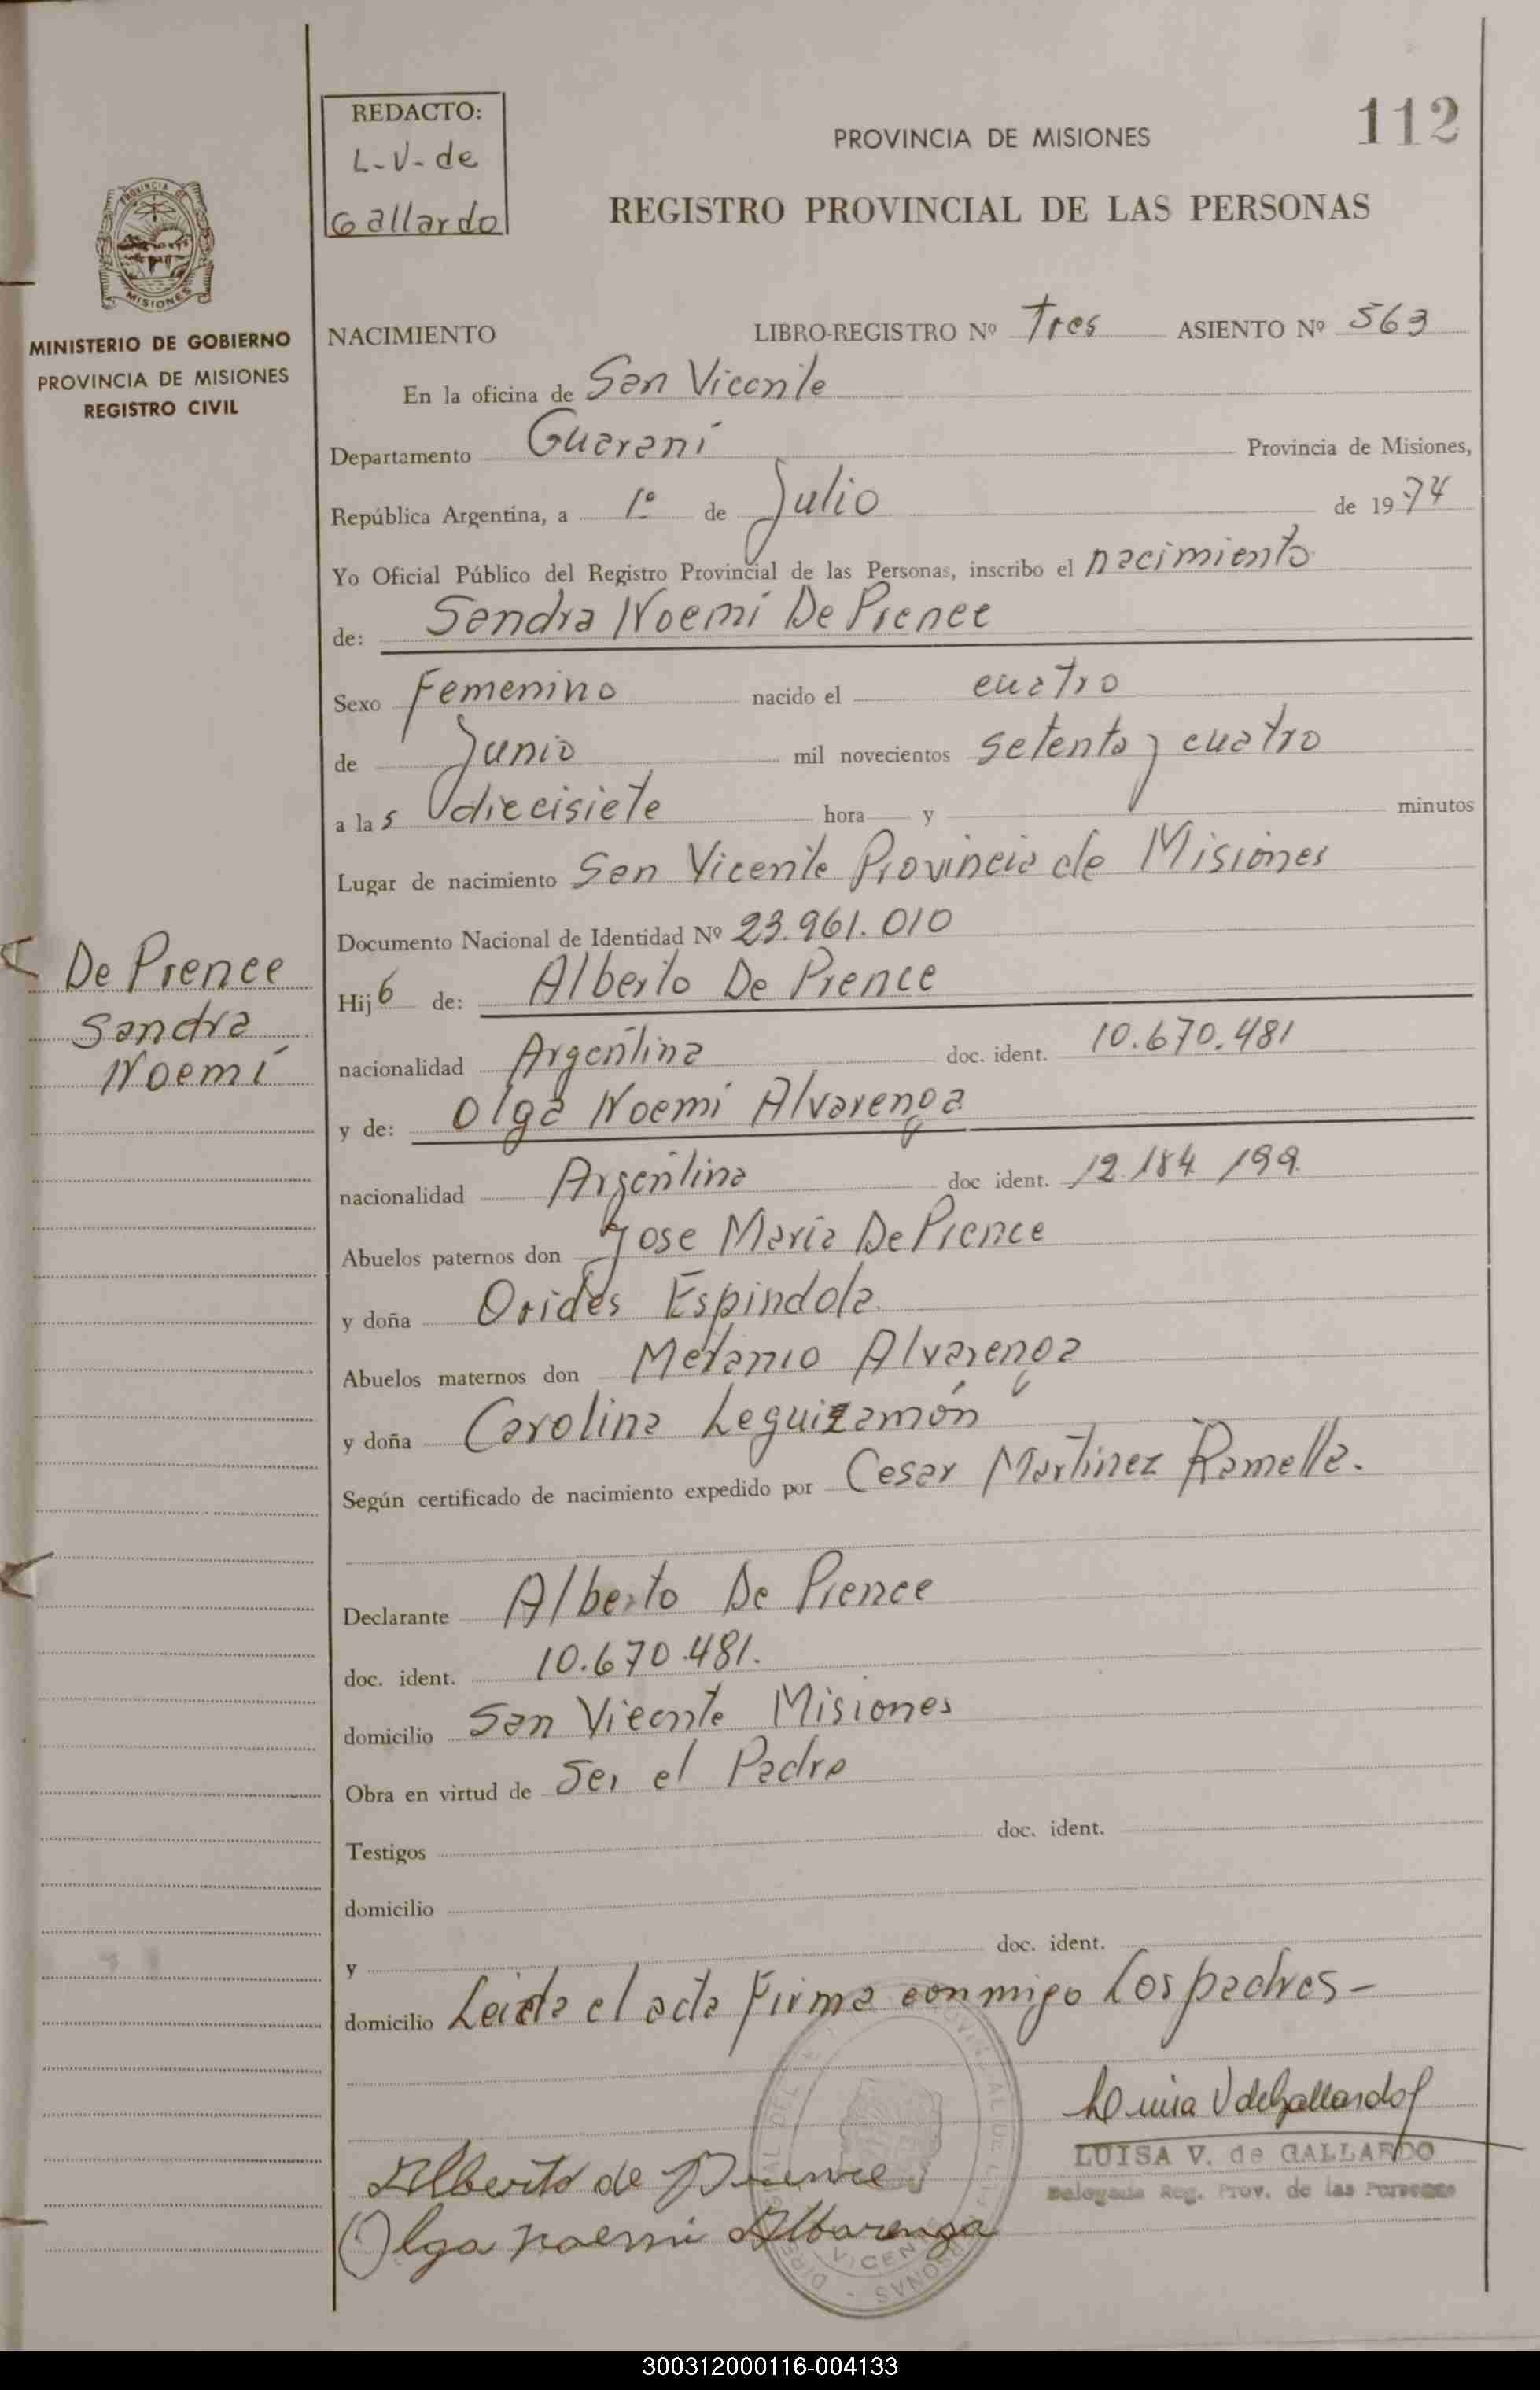 112
REDACTO:
L-V-de
Gallardo
PROVINCIA DE MISIONES
REGISTRO PROVINCIAL DE LAS PERSONAS
PROVINCIA DE
MISIONES
MINISTERIO DE GOBIERNO
PROVINCIA DE MISIONES
REGISTRO CIVIL
NACIMIENTO LIBRO-REGISTRO Nº Tres ASIENTO Nº 563
En la oficina de San Vicente
Departamento Guaraní Provincia de Misiones,
República Argentina, a 1º de Julio de 1974
Yo Oficial Público del Registro Provincial de las Personas, inscribo el nacimiento
de: Sandra Noemí De Prence
Sexo Femenino nacido el cuatro
de Junio mil novecientos setenta y cuatro
a las diecisiete hora y minutos
Lugar de nacimiento San Vicente Provincia de Misiones
Documento Nacional de Identidad Nº 23.961.010
De Prence
Sandra
Noemí
Hij6 de: Alberto De Prence
nacionalidad Argentina doc. ident. 10.670.481
y de: Olga Noemi Alvarenga
nacionalidad Argentina doc ident. 12.184 199.
Abuelos paternos don Jose María De Prence
y doña Orides Espindola.
Abuelos maternos don Alvarenga
y doña Carolina Leguizamón
Según certificado de nacimiento expedido por Cesar Martinez Ramella.
Declarante Alberto De Prence
doc. ident. 10.670.481.
domicilio San Vicente Misiones
Obra en virtud de Ser el Padre
Testigos doc. ident.
domicilio
y doc. ident.
domicilio Leida el acta Firma conmigo Los padres-
Luisa V de Gallardo
LUISA V. de GALLARDO
Delegada Reg. Prov. de las Personas
Alberto de Prence
Olga noemi Albarenga
VICENTE
300312000116-004133